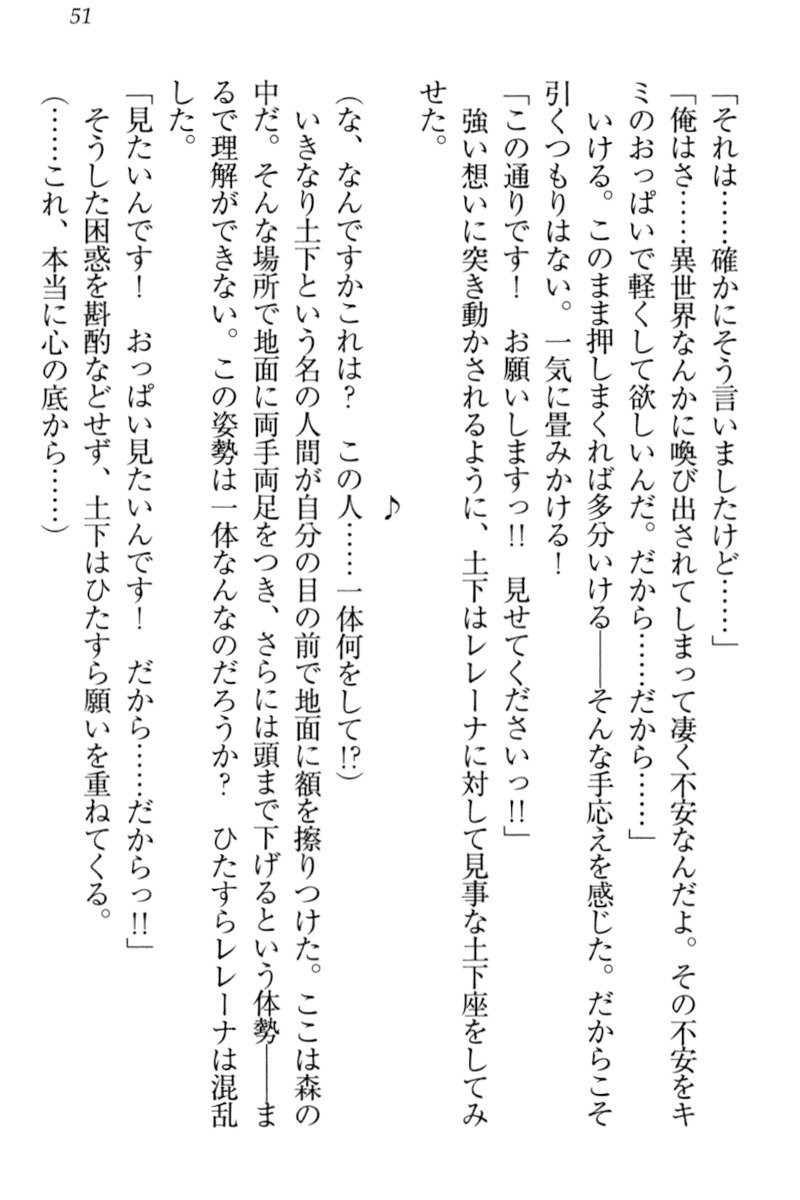 51
「それは……確かにそう言いましたけど……」
「俺はさ……異世界なんかに喚び出されてしまって凄く不安なんだよ。その不安をキ
ミのおっぱいで軽くして欲しいんだ。だから……だから……」
　いける。このまま押しまくれば多分いける――そんな手応えを感じた。だからこそ
引くつもりはない。一気に畳みかける！
「この通りです！　お願いしますっ!!　見せてくださいっ!!」
　強い想いに突き動かされるように、土下はレレーナに対して見事な土下座をしてみ
せた。
♪
（な、なんですかこれは？　この人……一体何をして!?）
　いきなり土下という名の人間が自分の目の前で地面に額を擦りつけた。ここは森の
中だ。そんな場所で地面に両手両足をつき、さらには頭まで下げるという体勢――ま
るで理解ができない。この姿勢は一体なんなのだろうか？　ひたすらレレーナは混乱
した。
「見たいんです！　おっぱい見たいんです！　だから……だからっ!!」
　そうした困惑を斟酌などせず、土下はひたすら願いを重ねてくる。
（……これ、本当に心の底から……）